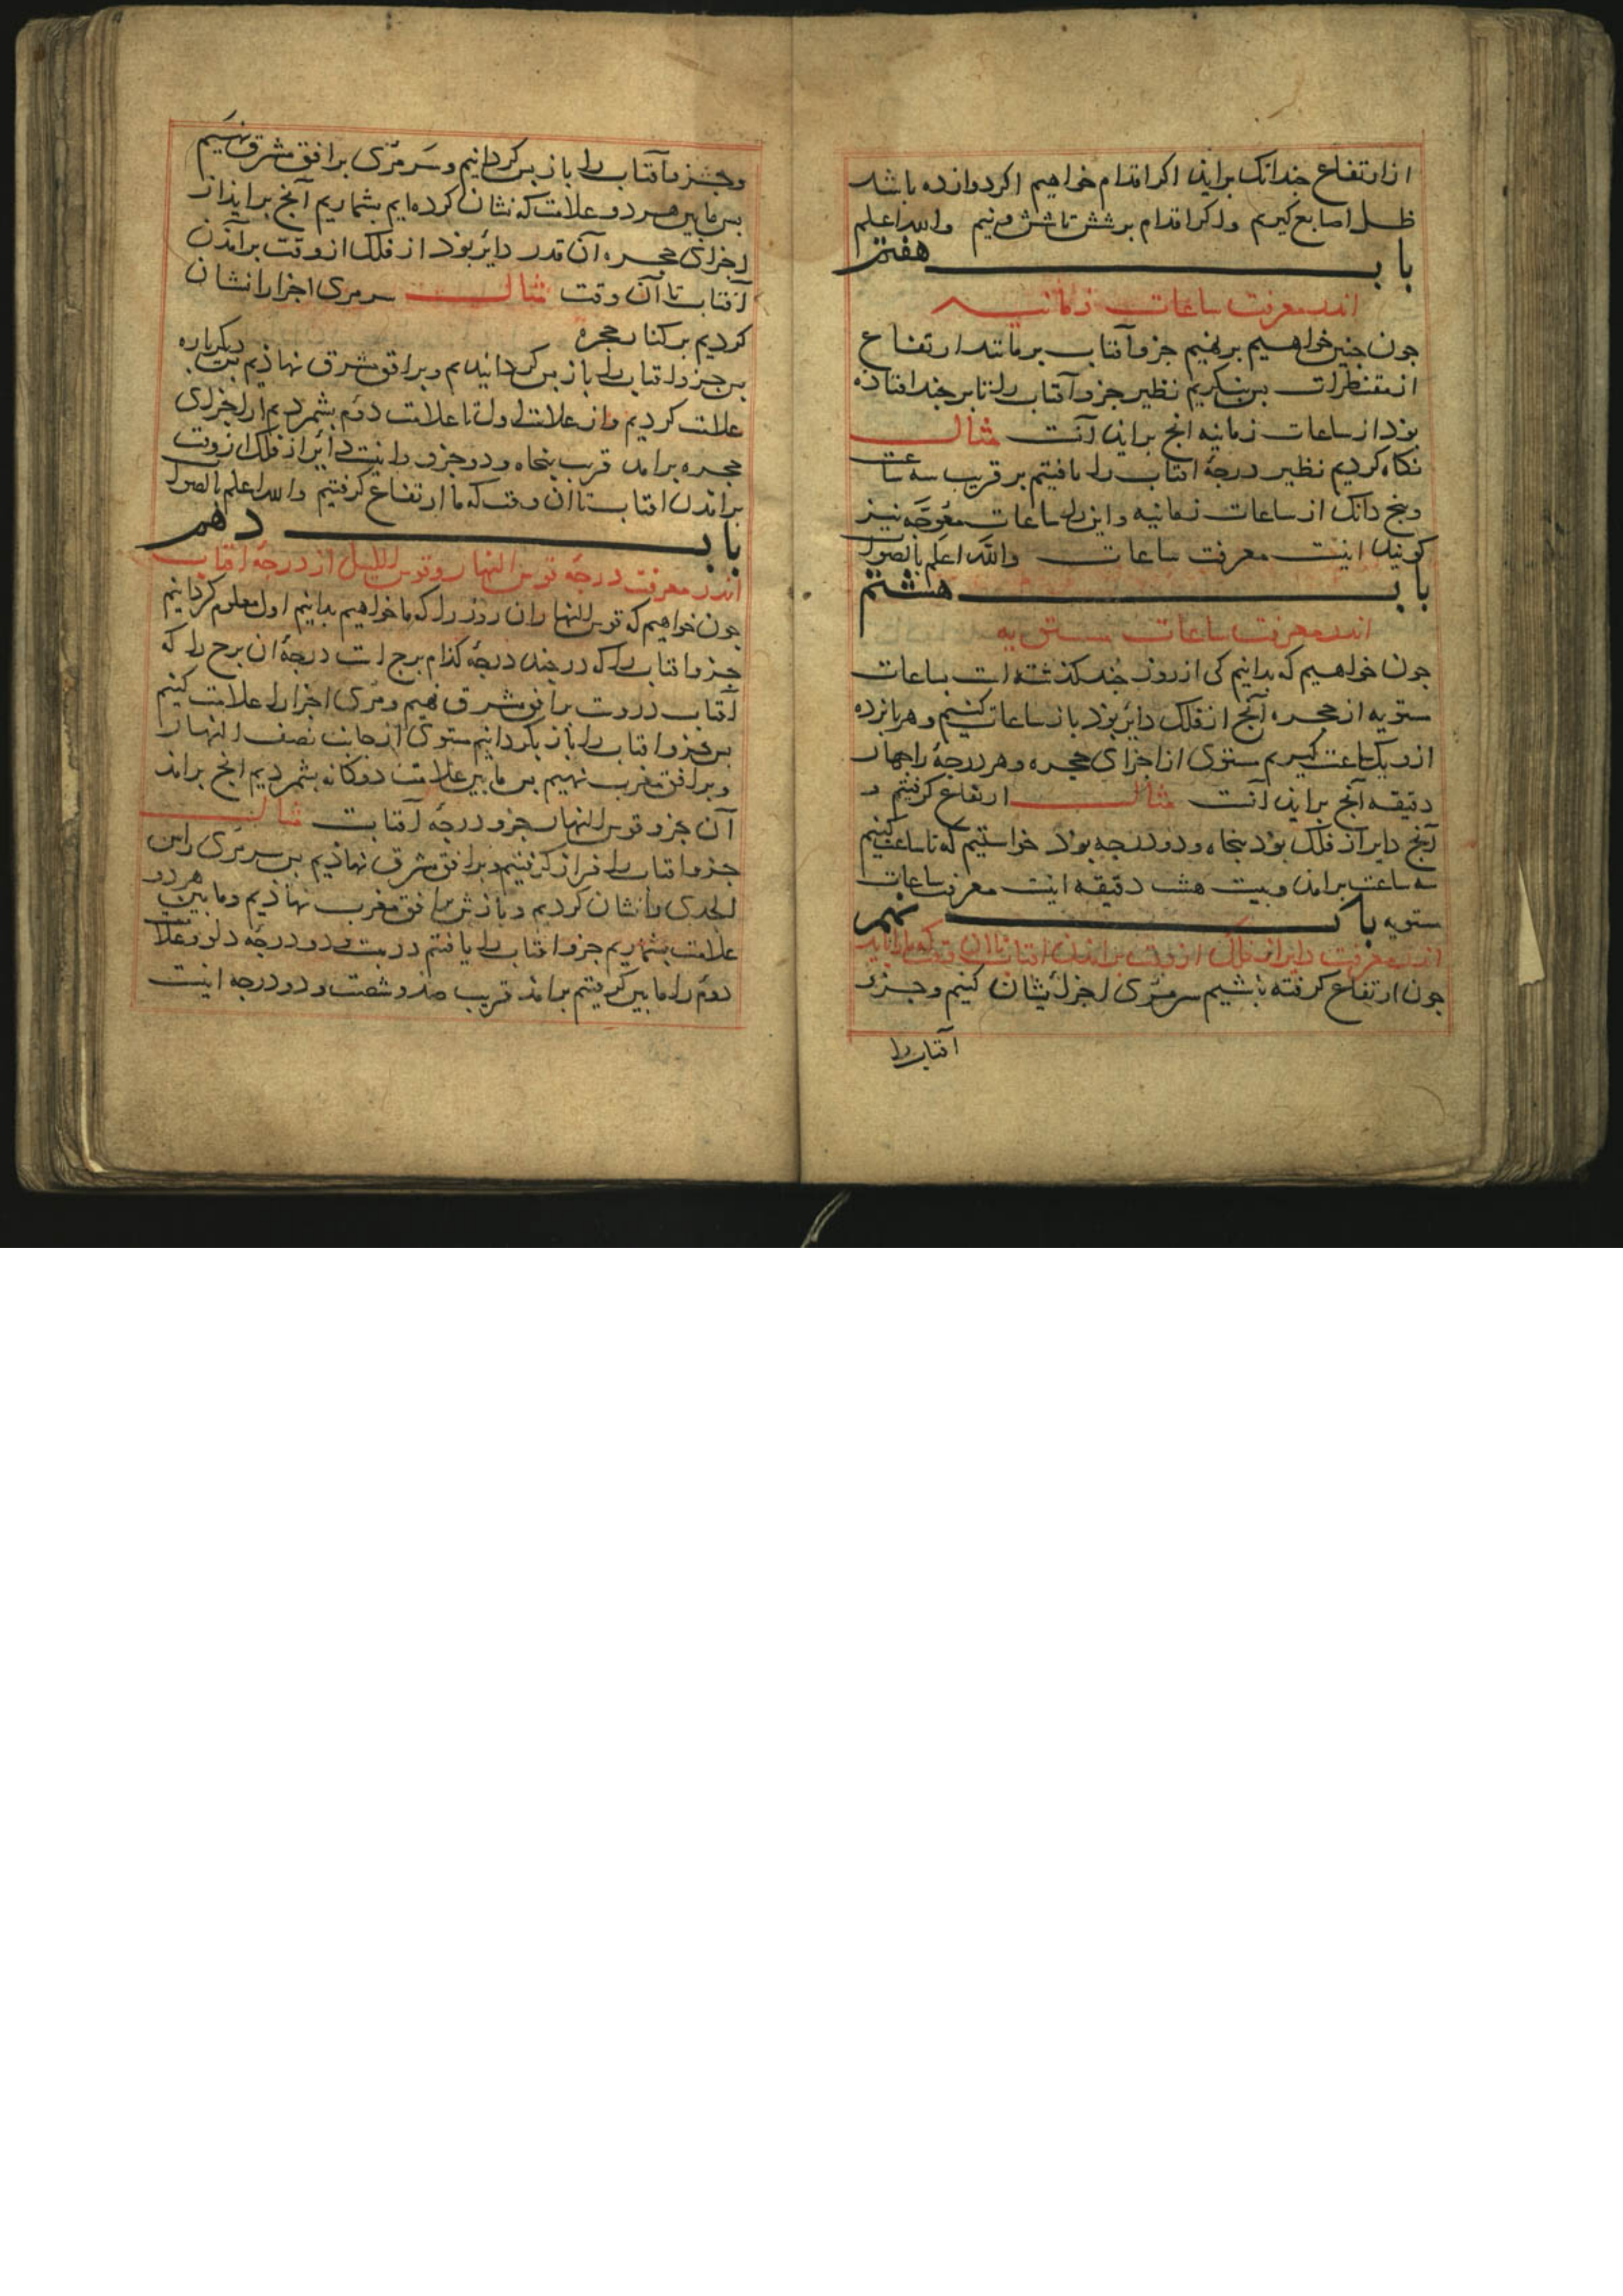 از ارتفاع چندانک براید اکر اقدام خواهیم اکر دوازده باشد
ظل اصابع کیریم واکر اقدام بر شش تا شش ونیم والله اعلم
باب هفتم
اندر معرفت ساعات زمانیه
جون جنین خواهیم برنهیم جزو آفتاب بر مانند ارتفاع
از مقنطرات بس بنکریم نظیر جزو آفتاب را تا بر جند افتاده
بوذ از ساعات زمانیه انج براید آنست مثال
نکاه کردیم نظیر درجۀ افتاب را یافتیم بر قریب سه ساعت
وپنج دانک از ساعات زمانیه واین را ساعات معوجه نیز
کویند اینست معرفت ساعات والله اعلم بالصواب
باب هشتم
اندر معرفت ساعات مستویه
جون خواهیم که بدانیم کی از روز جند کذشته است بساعات
مستویه از حجره آنج از فلک دایر بوذ باز ساعات کنیم وهر پانزده
ازو یک ساعت کیریم مستوی از اجزای حجره وهر درجۀ را جهار
دقیقه آنج براید آنست مثال ارتفاع کرفتیم و
آنج دایر از فلک بوذ پنجاه ودو درجه بوذ خواستیم که تا ساعت کنیم
سه ساعت برامد وبیست هشت دقیقه اینست معرفت ساعات
مستویه باب نهم
اندر معرفت دایر از فلک از وقت برامدن افتاب تا ان وقت که ما را باید
جون ارتفاع کرفته باشیم سر مری اجزا نشان کنیم وجزو
آفتاب را
وجزو آفتاب را باز پس کردانیم وسر مری بر افق مشرق نهیم
بس مابین هر دو علامت که نشان کرده ایم بشماریم آنج براید از
اجزای حجره آن قدر دایر بوذ از فلک از وقت برآمدن
آفتاب تا آن وقت مثال سر مری اجزا را نشان
کردیم بر کنار حجره
بس جزو افتاب را باز پس کردانیدیم وبر افق مشرق نهاذیم دیکرباره
علامت کردیم واز علامت اول تا علامت دوم بشمردیم از اجزای
حجره برامد قریب پنجاه ودو جزو واینست دایر از فلک از وقت
برامدن افتاب تا ان وقت که ما ارتفاع کرفتیم والله اعلم بالصواب
باب دهم
اندر معرفت درجۀ قوس النهار وقوس اللیل از درجۀ افتاب
جون خواهیم که قوس النهار ان روز را که ما خواهیم بدانیم اول معلوم کردانیم
جزو افتاب را که در جند درجۀ کذام برج است درجۀ ان برج را که
آفتاب دروست بر افق مشرق نهیم ومری اجزا را علامت کنیم
بس جزو افتاب را باز بکردانیم مستوی از جانب نصف النهار
وبر افق مغرب نهیم بس مابین علامت دوکانه بشمردیم انج براید
آن جزو قوس النهار جزو درجه آفتابست مثال
جزو افتاب را فراز کرفتیم وبر افق مشرق نهاذیم بس سر مری راس
الجدی را نشان کردیم وبازش بر افق مغرب نهاذیم ومابین هر دو
علامت بشماریم جزو افتاب را یافتیم در بیست ودو درجۀ دلو وعلامت
دوم را مابین کرفتیم برامد قریب صد وشصت ودو درجه اینست